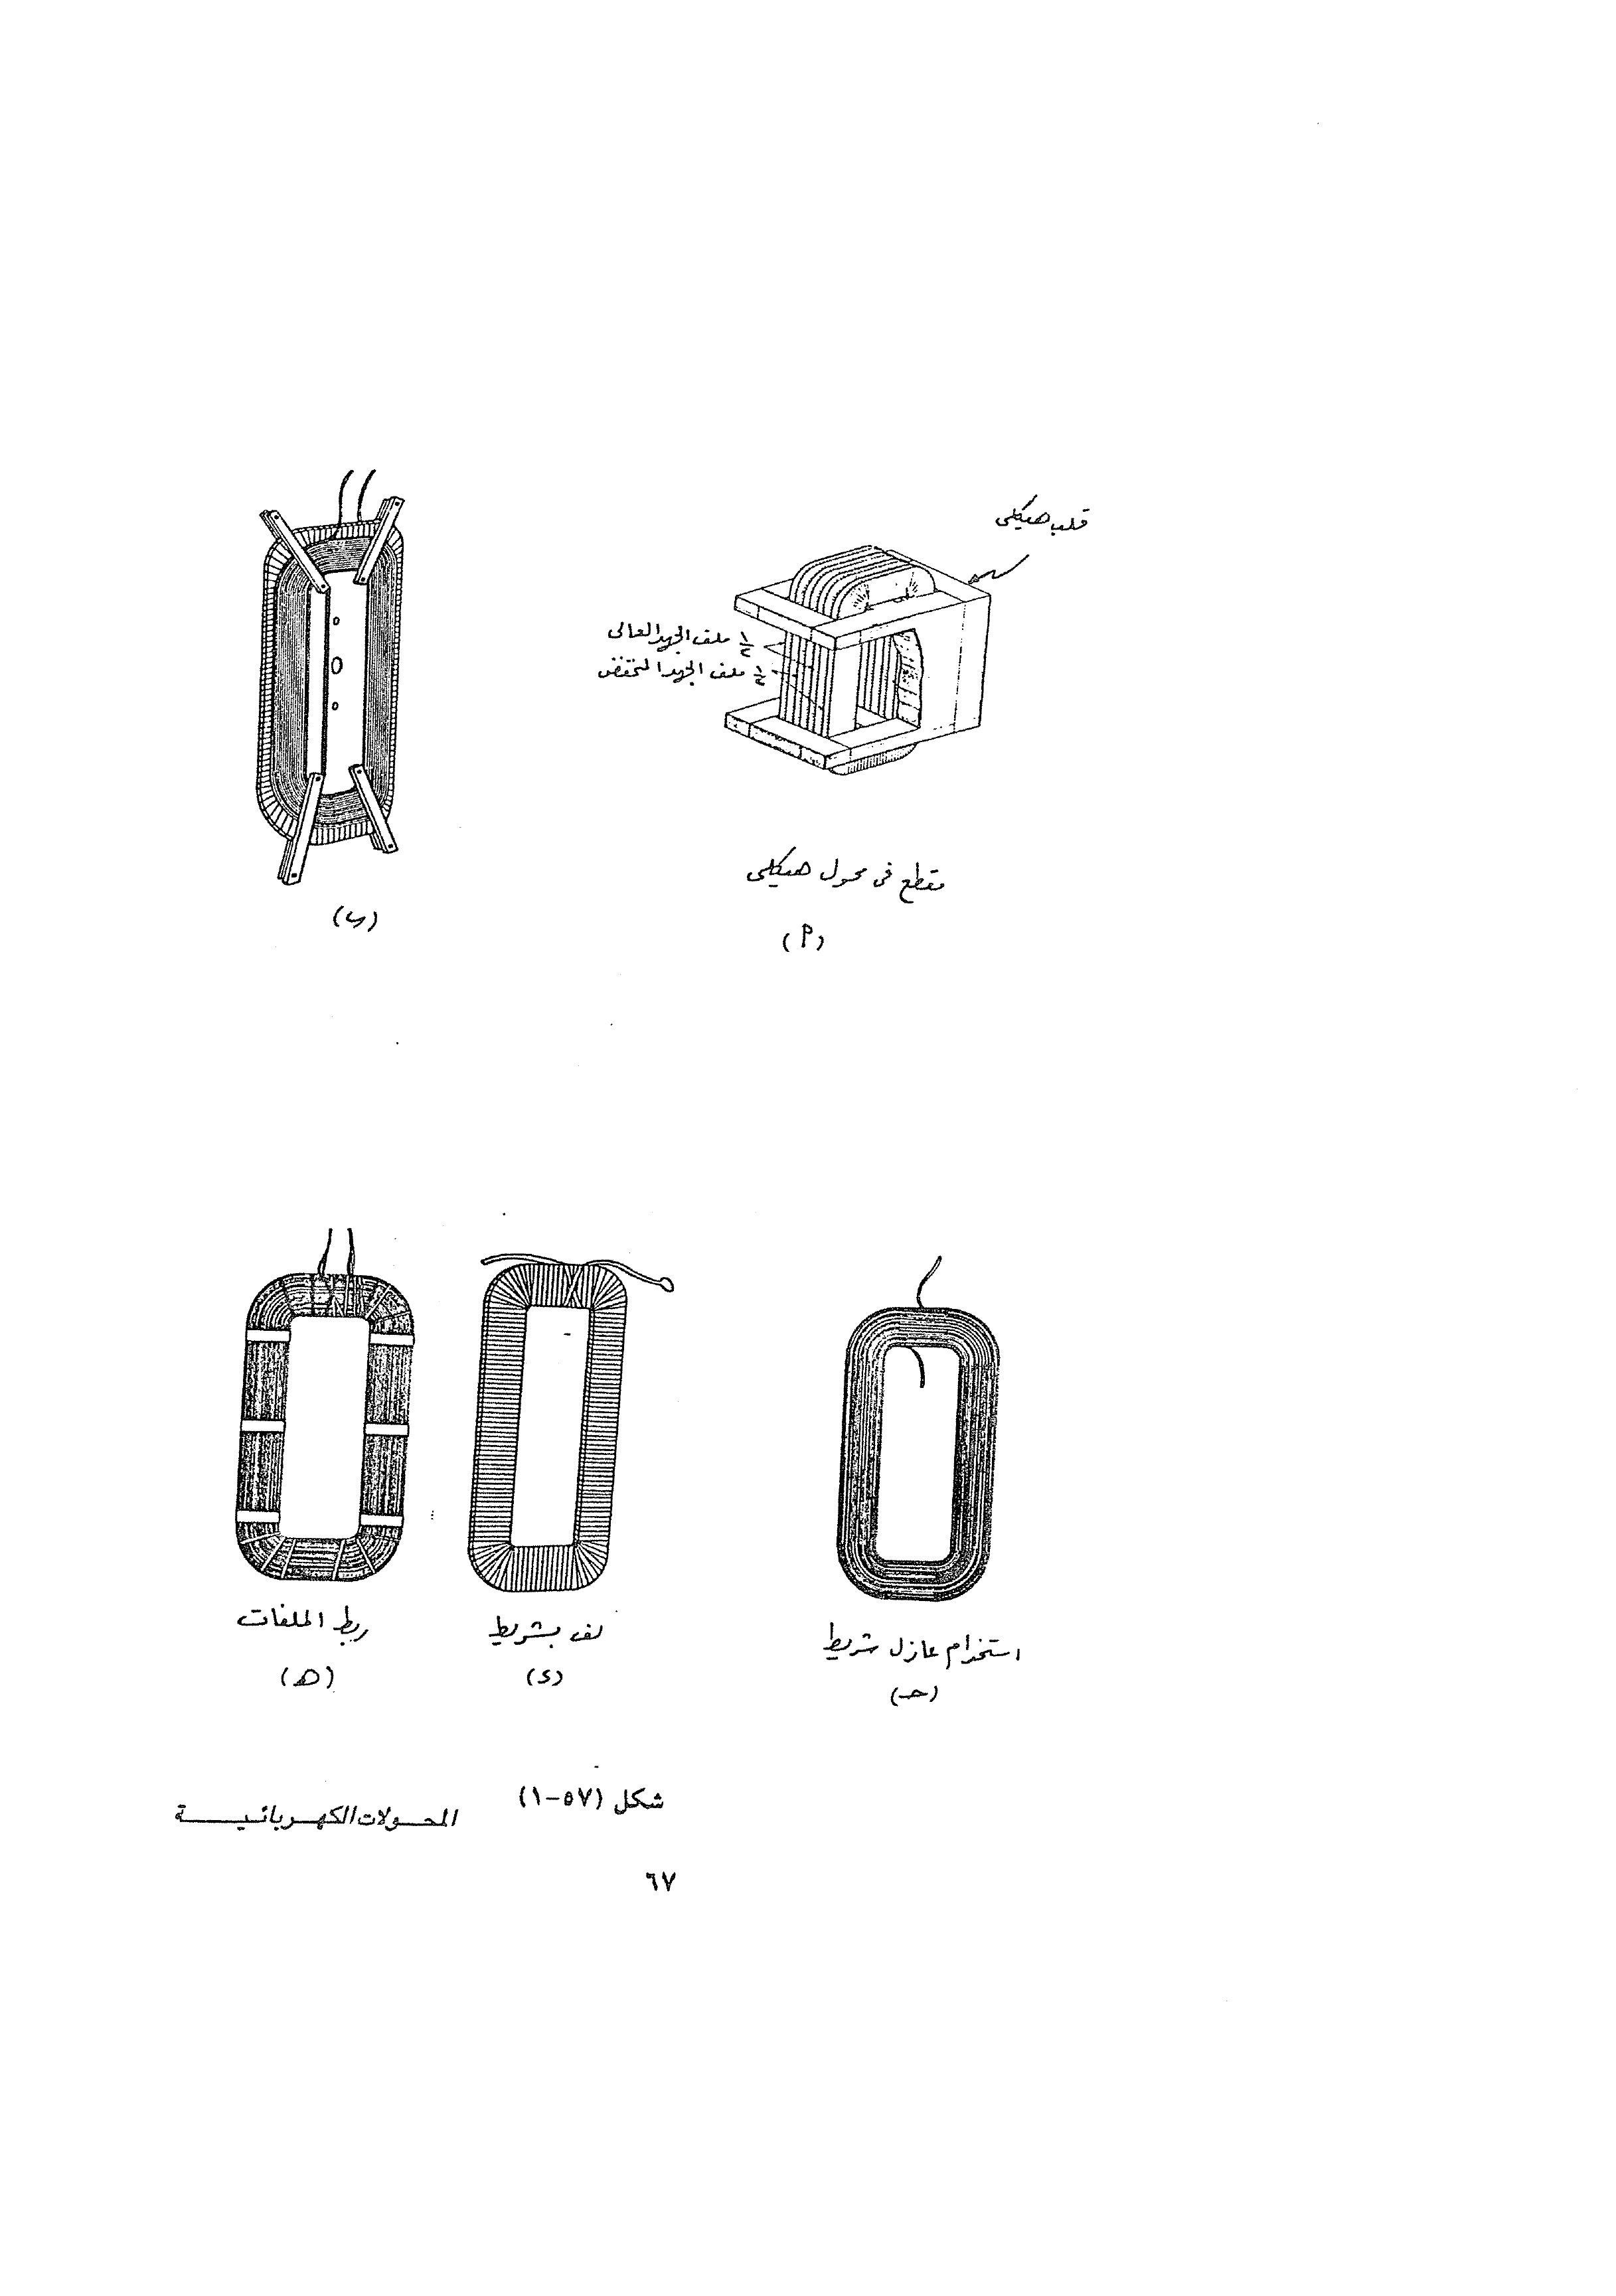 قلب هيكلى
١/٢ ملف الجهد العالى
١/٢ ملف الجهد المنخفض
مقطع فى محول هيكلى
(أ)
(ب)
استخدام عازل شريط
(حـ)
لف بشريط
(د)
ربط الملفات
(هـ)
شكل (٥٧-١)
المحولات الكهربائية
٦٧